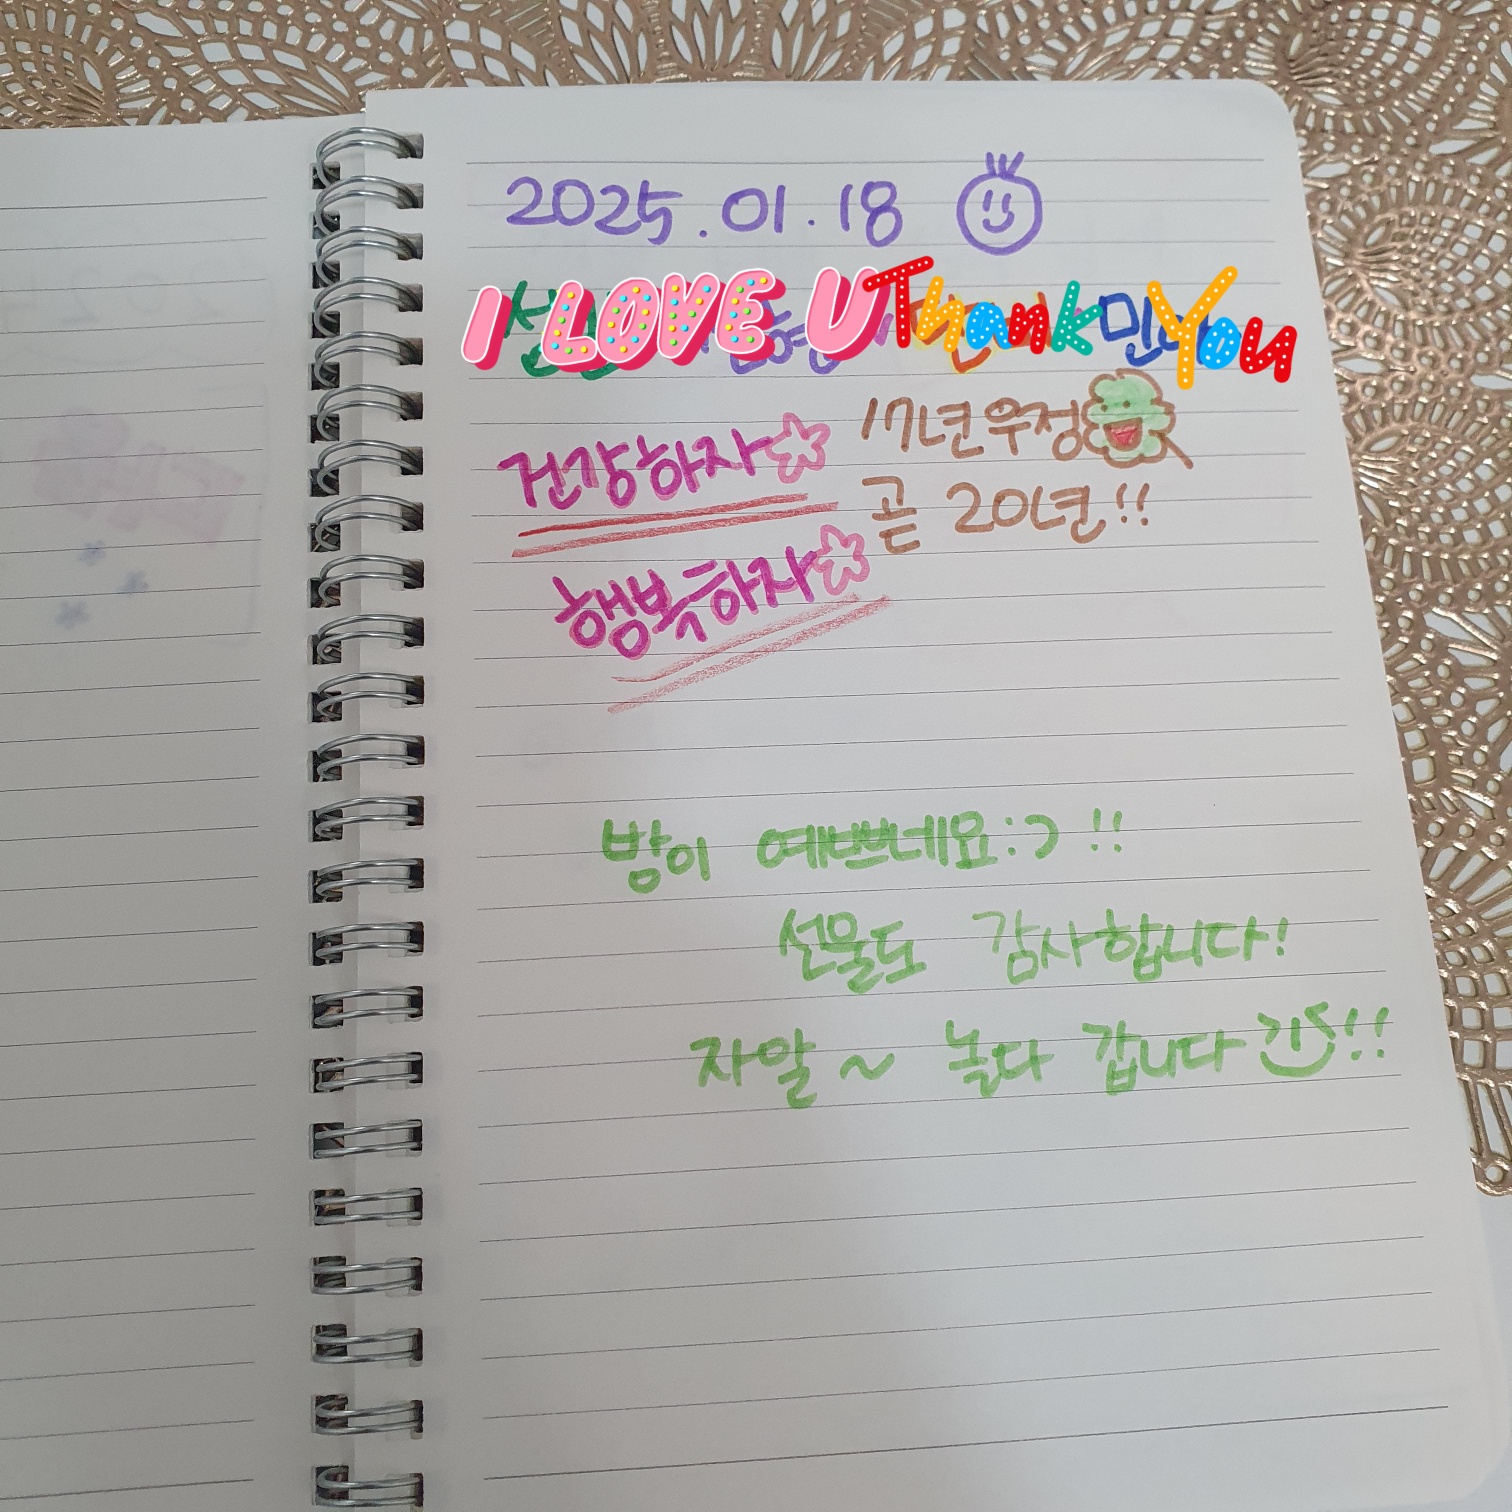 2025.01.18
I LOVE U Thank You
건강하자☆ 17년우정
곧 20년!!
행복하자☆
방이 예쁘네요:) !!
선물도 감사합니다!
자알~ 놀다 갑니다!!